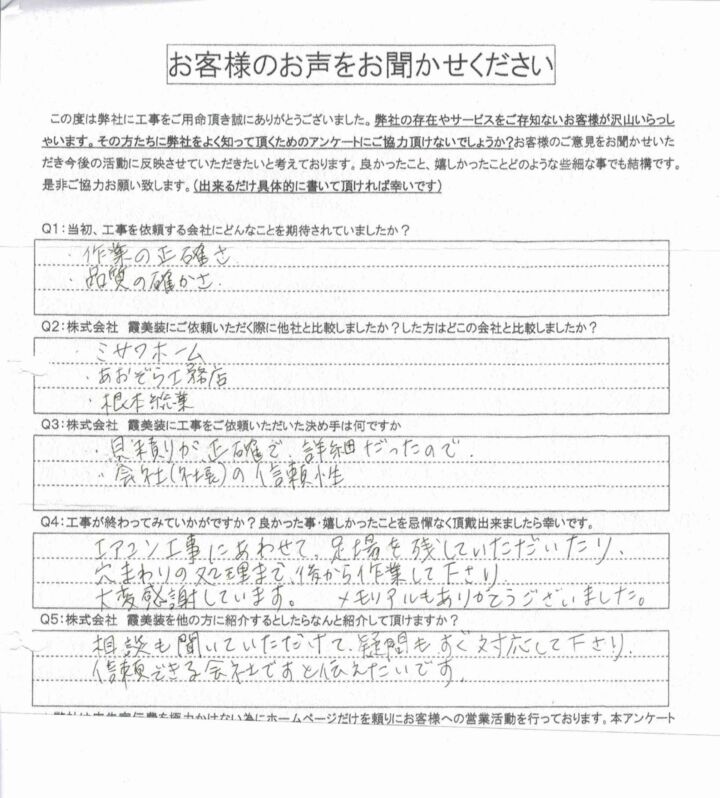 お客様のお声をお聞かせください
この度は弊社に工事をご用命頂き誠にありがとうございました。弊社の存在やサービスをご存知ないお客様が沢山いらっし
ゃいます。その方たちに弊社をよく知って頂くためのアンケートにご協力頂けないでしょうか?お客様のご意見をお聞かせいた
だき今後の活動に反映させていただきたいと考えております。良かったこと、嬉しかったことどのような些細な事でも結構です。
是非ご協力お願い致します。(出来るだけ具体的に書いて頂ければ幸いです)
Q1:当初、工事を依頼する会社にどんなことを期待されていましたか?
・作業の正確さ
・品質の確かさ.
Q2:株式会社 霞美装にご依頼いただく際に他社と比較しましたか?した方はどこの会社と比較しましたか?
・ミサワホーム
・あおぞら工務店
・根本総業
Q3:株式会社 霞美装に工事をご依頼いただいた決め手は何ですか
・見積りが正確で、詳細だったので.
・会社(社長)の信頼性
Q4:工事が終わってみていかがですか?良かった事・嬉しかったことを忌憚なく頂戴出来ましたら幸いです。
エアコン工事にあわせて、足場を残していただいたり、
穴まわりの処理まで、後から作業して下さり
大変感謝しています。 メモリアルもありがとうございました。
Q5:株式会社 霞美装を他の方に紹介するとしたらなんと紹介して頂けますか?
相談も聞いていただけて、疑問もすぐ対応して下さり、
信頼できる会社ですと伝えたいです。
弊社は広告宣伝費を極力かけない為にホームページだけを頼りにお客様への営業活動を行っております。本アンケート